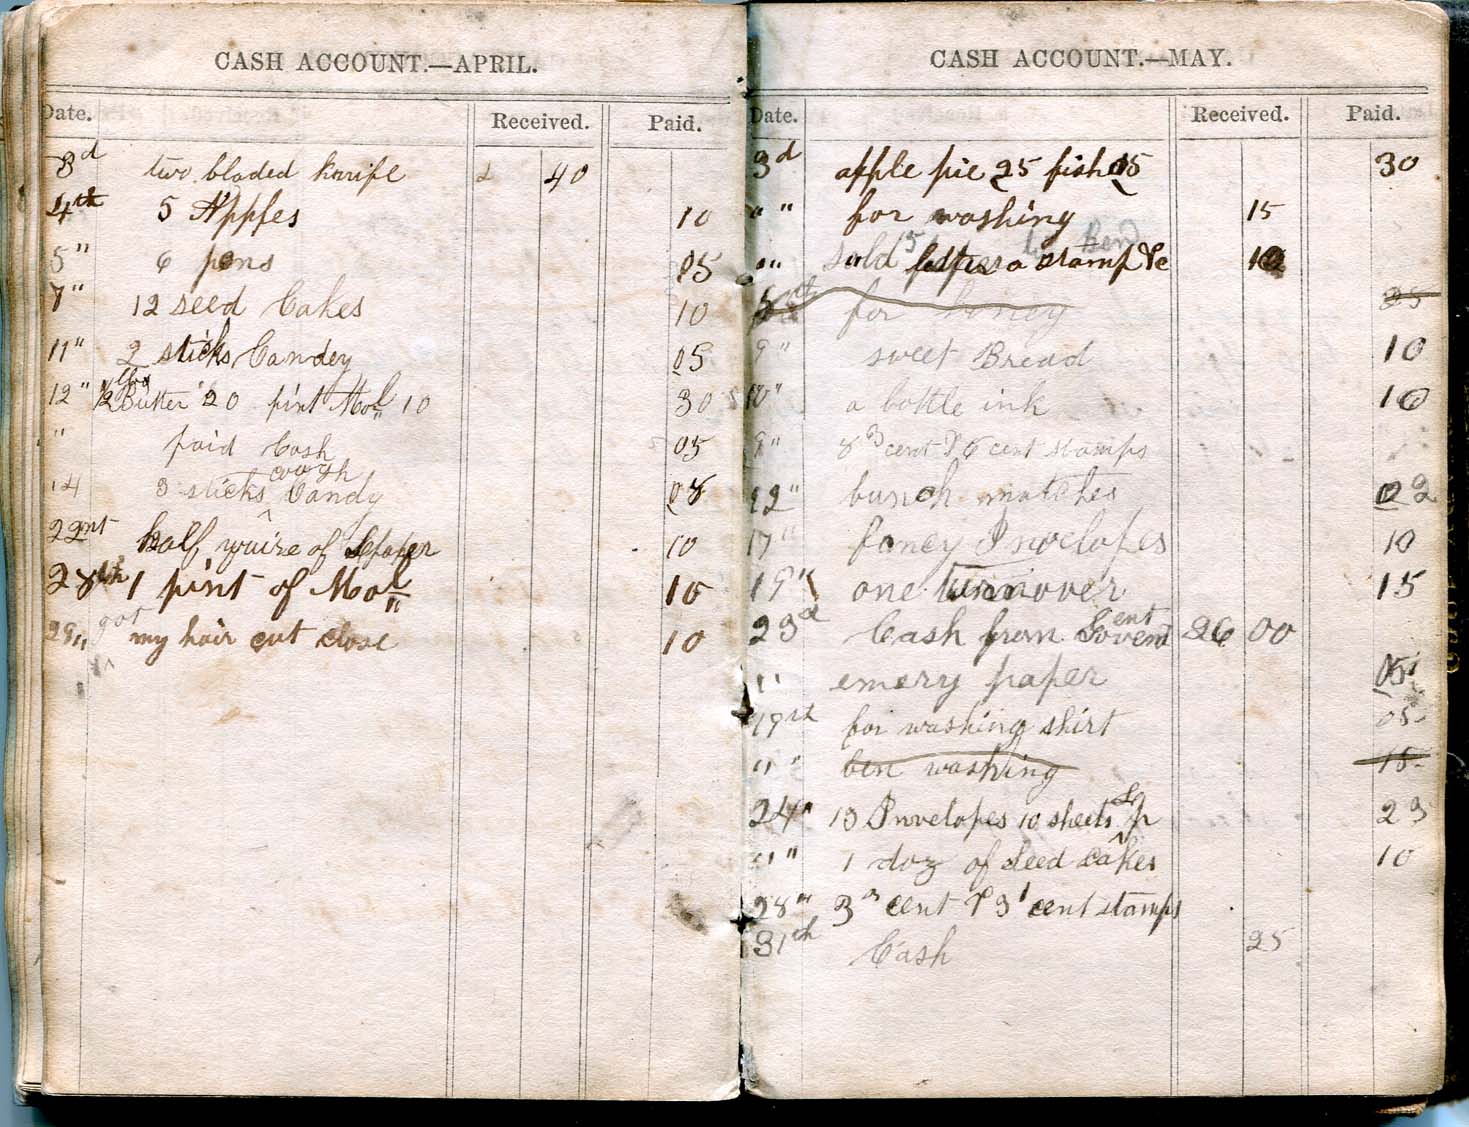 CASH ACCOUNT.—APRIL.
Date. Received. Paid.
3d two bladed knife 40
4th 5 Apples 10
5" 6 pens 05
7" 12 seed Cakes 10
11" 2 sticks Candey 05
12" 1/2 lbs Butter 20 pint Mol" 10 30
" paid Cash 05
14 3 sticks cough Candy 08
22nt half quire of paper 10
28th 1 pint of Mol" 10
29" got my hair cut close 10
CASH ACCOUNT.—MAY.
Date. Received. Paid.
3d apple pie 25 fish 05 30
" " for washing 15
" " sold 5 a stamp &c to Ben 10
for honey 05
9" sweet Bread 10
10" a bottle ink 10
9" 8 3 cent & 6 cent stamps
12" bunch matches 02
17" fancy Invelopes 10
19" one turnover 15
23d Cash from Government 26 00
" emery paper 05
19th for washing shirt 05
" " ben washing 15
24" 13 Invelopes 10 sheets p 23
" " 1 doz of seed cakes 10
28" 3 3 cent & 3 1 cent stamps
31th Cash 25